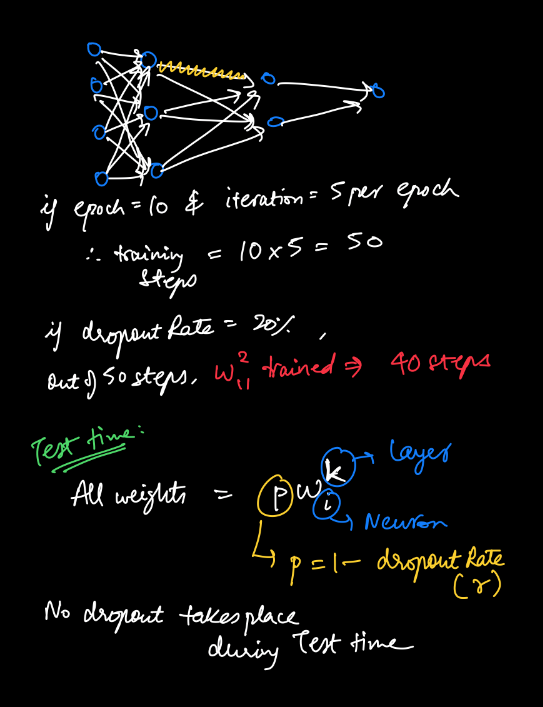 if epoch = 10 & iteration = 5 per epoch
∴ training steps = 10 x 5 = 50
if dropout Rate = 20%,
out of 50 steps, W₁₁² trained ⇒ 40 steps
Test time:
All weights = p w k i
→ Layer
→ Neuron
→ p = 1 - dropout Rate (r)
No dropout takes place
during Test time